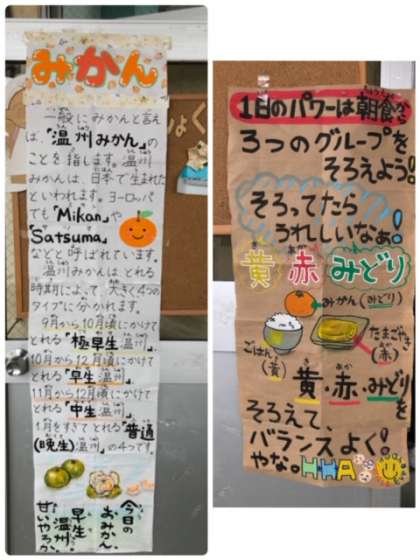 みかん
一般にみかんと言え
ば、「温州みかん」の
ことを指します。温州
みかんは、日本で生まれた
といわれます。ヨーロッパ
でも「Mikan」や
「Satsuma」
などと呼ばれています。
温州みかんはとれる
時期によって、大きく4つの
タイプに分かれます。
9月から10月頃にかけて
とれる「極早生温州」、
10月から12月頃にかけて
とれる「早生温州」
11月から12月頃にかけて
とれる「中生温州」、
1月をすぎてとれる「普通
(晩生)温州」の4つです。
今日の
おみかん、
早生
温州。
甘いやろか。
1日のパワーは朝食から
3つのグループを
そろえよう!
そろってたら
うれしいなぁ!
黄 赤 みどり
みかん(みどり)
たまごやき
(赤)
ごはん
(黄)
黄・赤・みどりを
そろえて、
バランスよく!
やな。